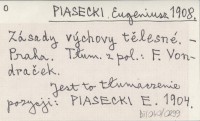 0
PIASECKI Eugeniusz 1908.
Zásady výchovy tělesné. -
Praha. Tłum. z pol.: F. Von-
draček.
Jest to tłumaczenie
pozycji: PIASECKI E. 1904.